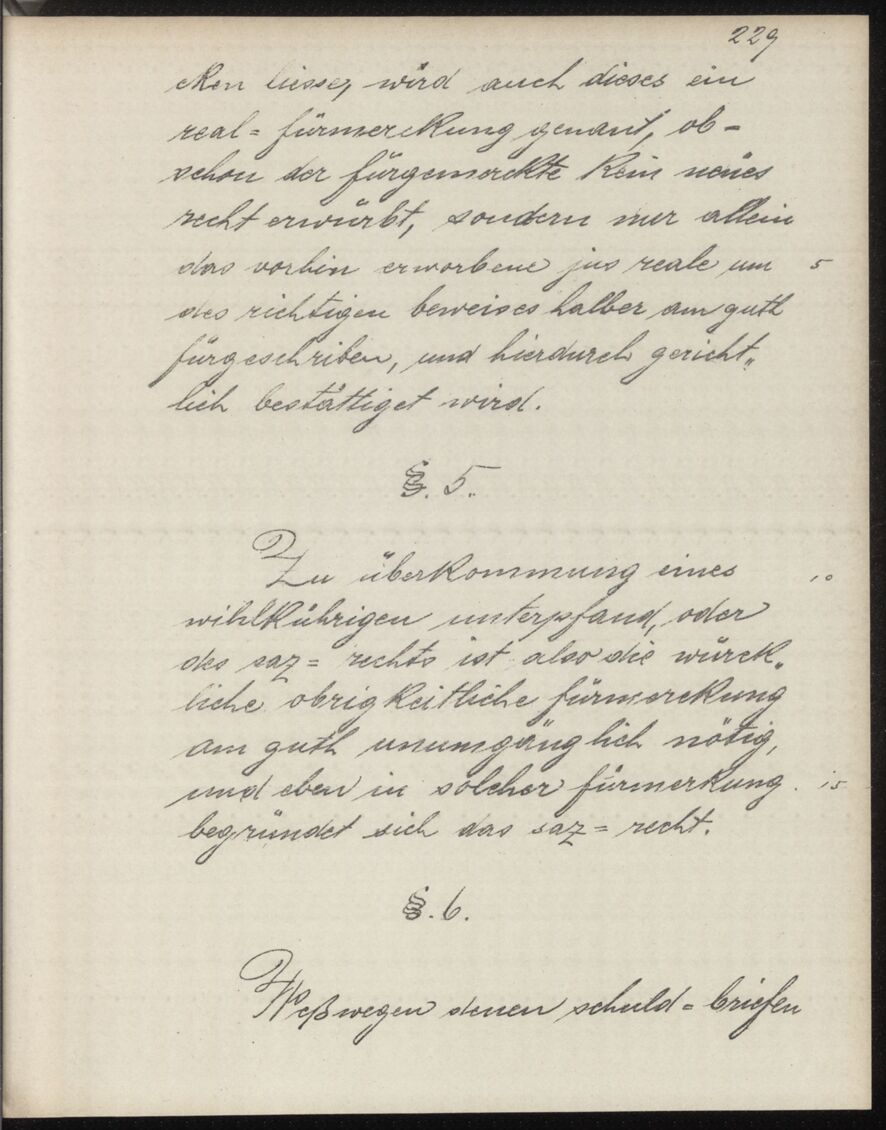 229
cken liesse, wird auch dieses ein
real= fürmerckung genant, ob-
schon der fürgemerckte kein neües
recht erwürbt, sondern nur allein
das vorhin erworbene jus reale um 5
des richtigen beweises halber am guth
fürgeschriben, und hierdurch gericht„
lich bestättiget wird.
§. 5.
Zu überkommung eines 10
wihlkührigen unterpfand, oder
des saz= rechts ist also die würck„
liche obrigkeitliche fürmerckung
am guth unumgänglich nötig,
und eben in solcher fürmerkung 15
begründet sich das saz= recht.
§. 6.
Weßwegen denen schuld= briefen